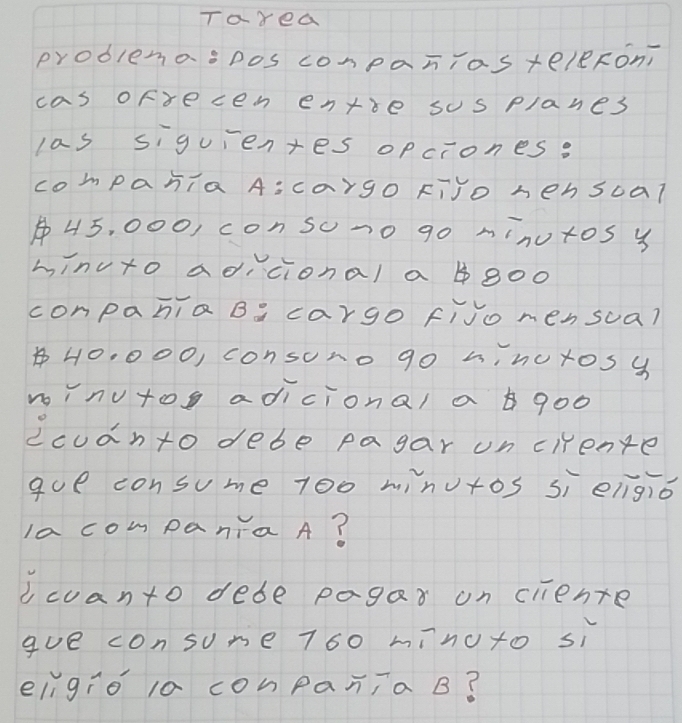 Tarea
problema: Dos compañias telefóni
cas ofrecen entre sus planes
las siguientes opciones:
compañia A: cargo fijo mensual
$ 45.000, consumo 90 minutos y
minuto adicional a $ 800
compañia B: cargo fijo mensual
$ 40.000, consumo 90 minutos y
minutos adicional a $ 900
¿cuánto debe pagar un cliente
que consume 100 minutos si eligió
la compañia A?
¿cuanto debe pagar un cliente
que consume 160 minuto si
eligió la compañia B?